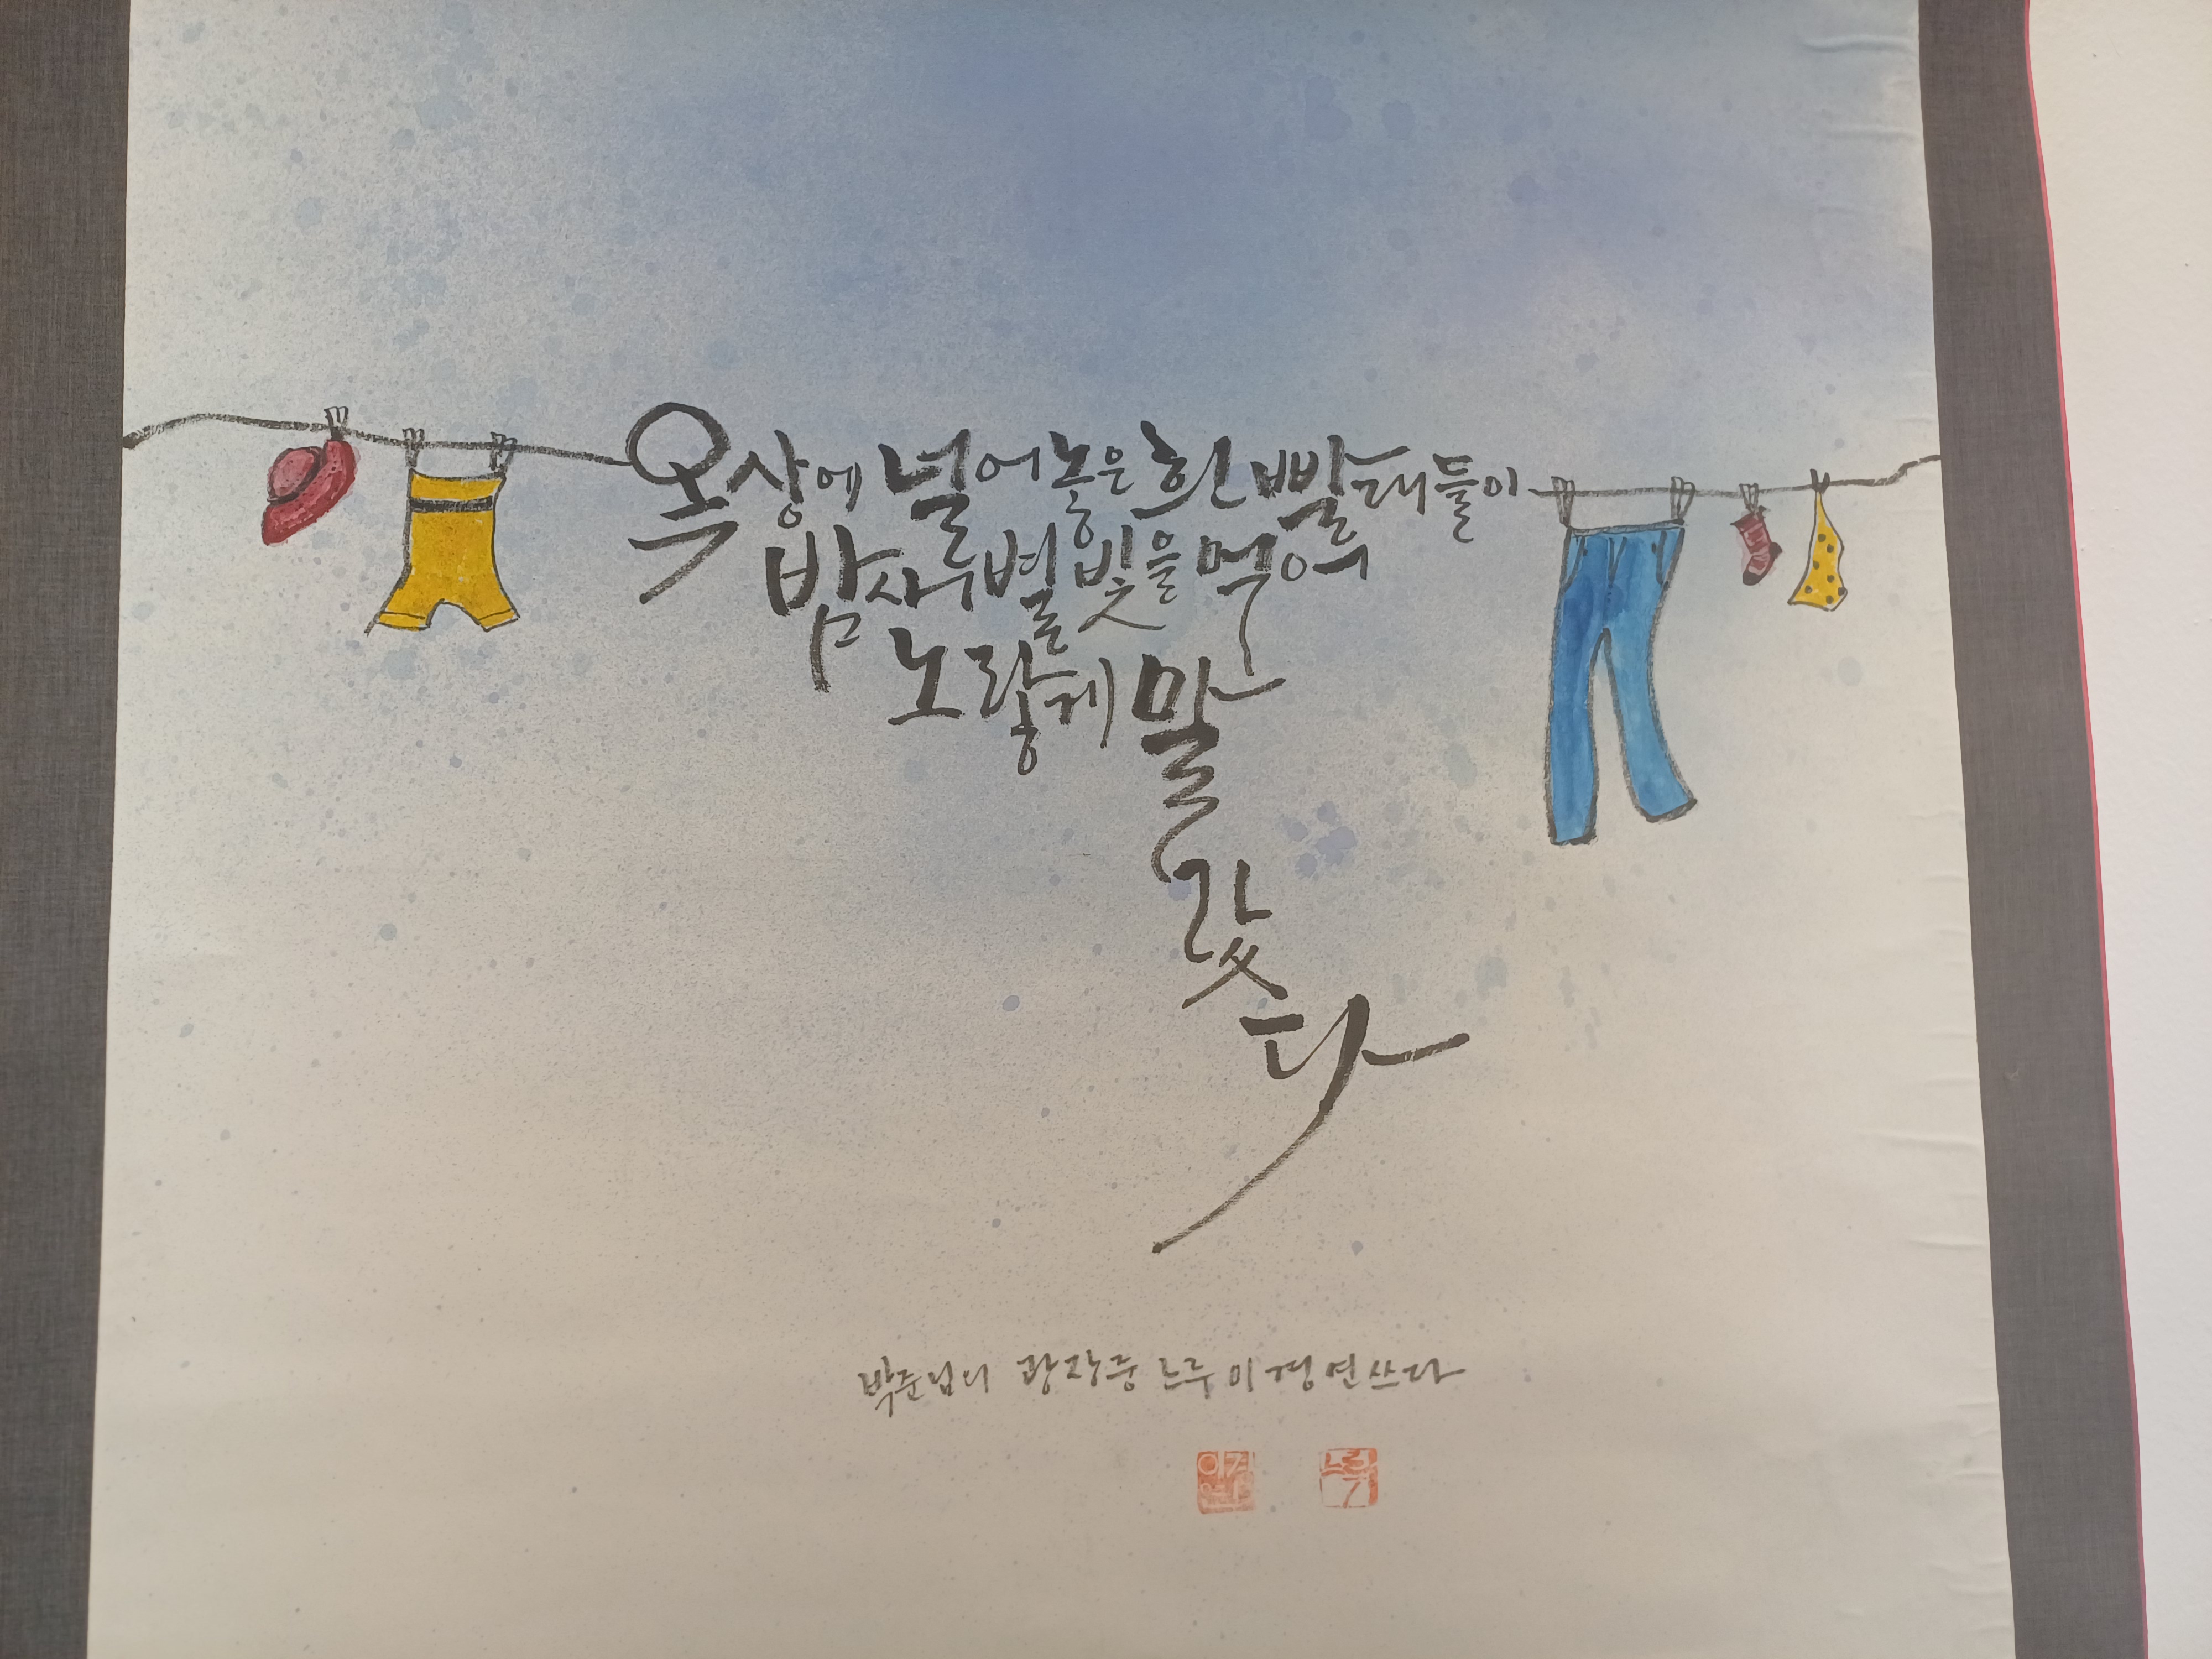 옥상에 널어놓은 흰 빨래들이
밤사이 별빛을 먹어
노랗게 말
랐
다
박준님의 광장중 느루 이경연 쓰다
이경연
느루